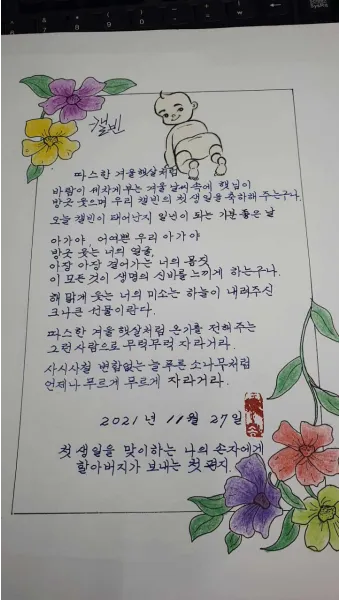 캘빈
따스한 겨울햇살처럼
바람이 세차게 부는 겨울 날씨 속에 햇님이
방긋 웃으며 우리 캘빈의 첫 생일을 축하해 주는구나.
오늘 캘빈이 태어난지 일년이 되는 기분 좋은 날
아가야, 어여쁜 우리 아가야
방긋 웃는 너의 얼굴,
아장 아장 걸어가는 너의 몸짓
이 모든 것이 생명의 신비를 느끼게 하는구나.
해 맑게 웃는 너의 미소는 하늘이 내려주신
크나큰 선물이란다.
따스한 겨울 햇살처럼 온기를 전해 주는
그런 사람으로 무럭무럭 자라거라.
사시사철 변함없는 늘 푸른 소나무처럼
언제나 푸르게 푸르게 자라거라.
2021년 11월 27일
첫 생일을 맞이하는 나의 손자에게
할아버지가 보내는 첫 편지.